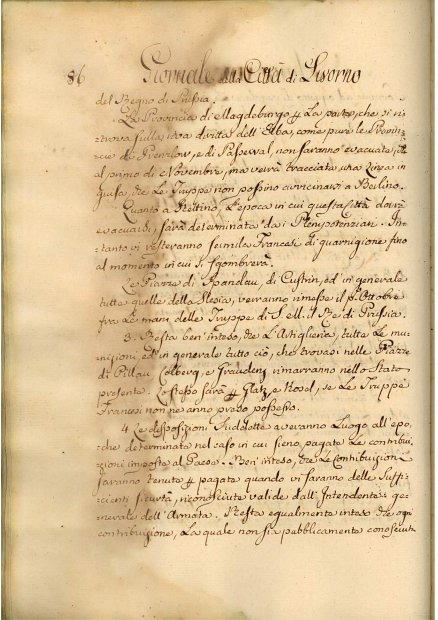 86 Giornale della Città di Livorno
del Regno di Prussia.
La Provincia di Magdeburgo la parte, che si ri-
trova sulla riva diritta dell'Elba, come pure le Provin-
cie di Prenzlow, e di Passewal, non saranno evacuate, che
al primo di Novembre, ma verrà tracciata una Linea in
guisa, che le Truppe non possino avvicinarsi a Berlino.
Quanto a Stettino, l'epoca in cui questa Città dovrà
evacuarsi, sarà determinata dai Plenipotenziari. In-
tanto vi resteranno seimila Francesi di guarnigione fino
al momento in cui si sgombrerà.
Le Piazze di Spandau, di Custrin, ed in generale
tutte quelle della Slesia, verranno rimesse il p.º Ottobre
fra le mani delle Truppe di S. M. il Re di Prussia.
3. Resta ben inteso, che l'Artiglieria, tutte le mu-
nizioni, ed in generale tutto ciò, che trovasi nelle Piazze
di Pillau, Colberg, e Graudenz rimarranno nello Stato
presente. Lo stesso sarà Glatz, e Kosel, se le Truppe
Francesi non ne anno preso possesso.
4. Le disposizioni suddette averanno Luogo all'epo-
che determinate nel caso in cui sieno pagate le contribu-
zioni imposte al Paese. Ben inteso, che le Contribuzioni
saranno tenute pagate quando vi saranno delle suffi-
cienti sicurtà, riconosciute valide dall'Intendente ge-
nerale dell'Armata. Resta egualmente inteso che ogni
contribuzione, La quale non sia pubblicamente conosciuta